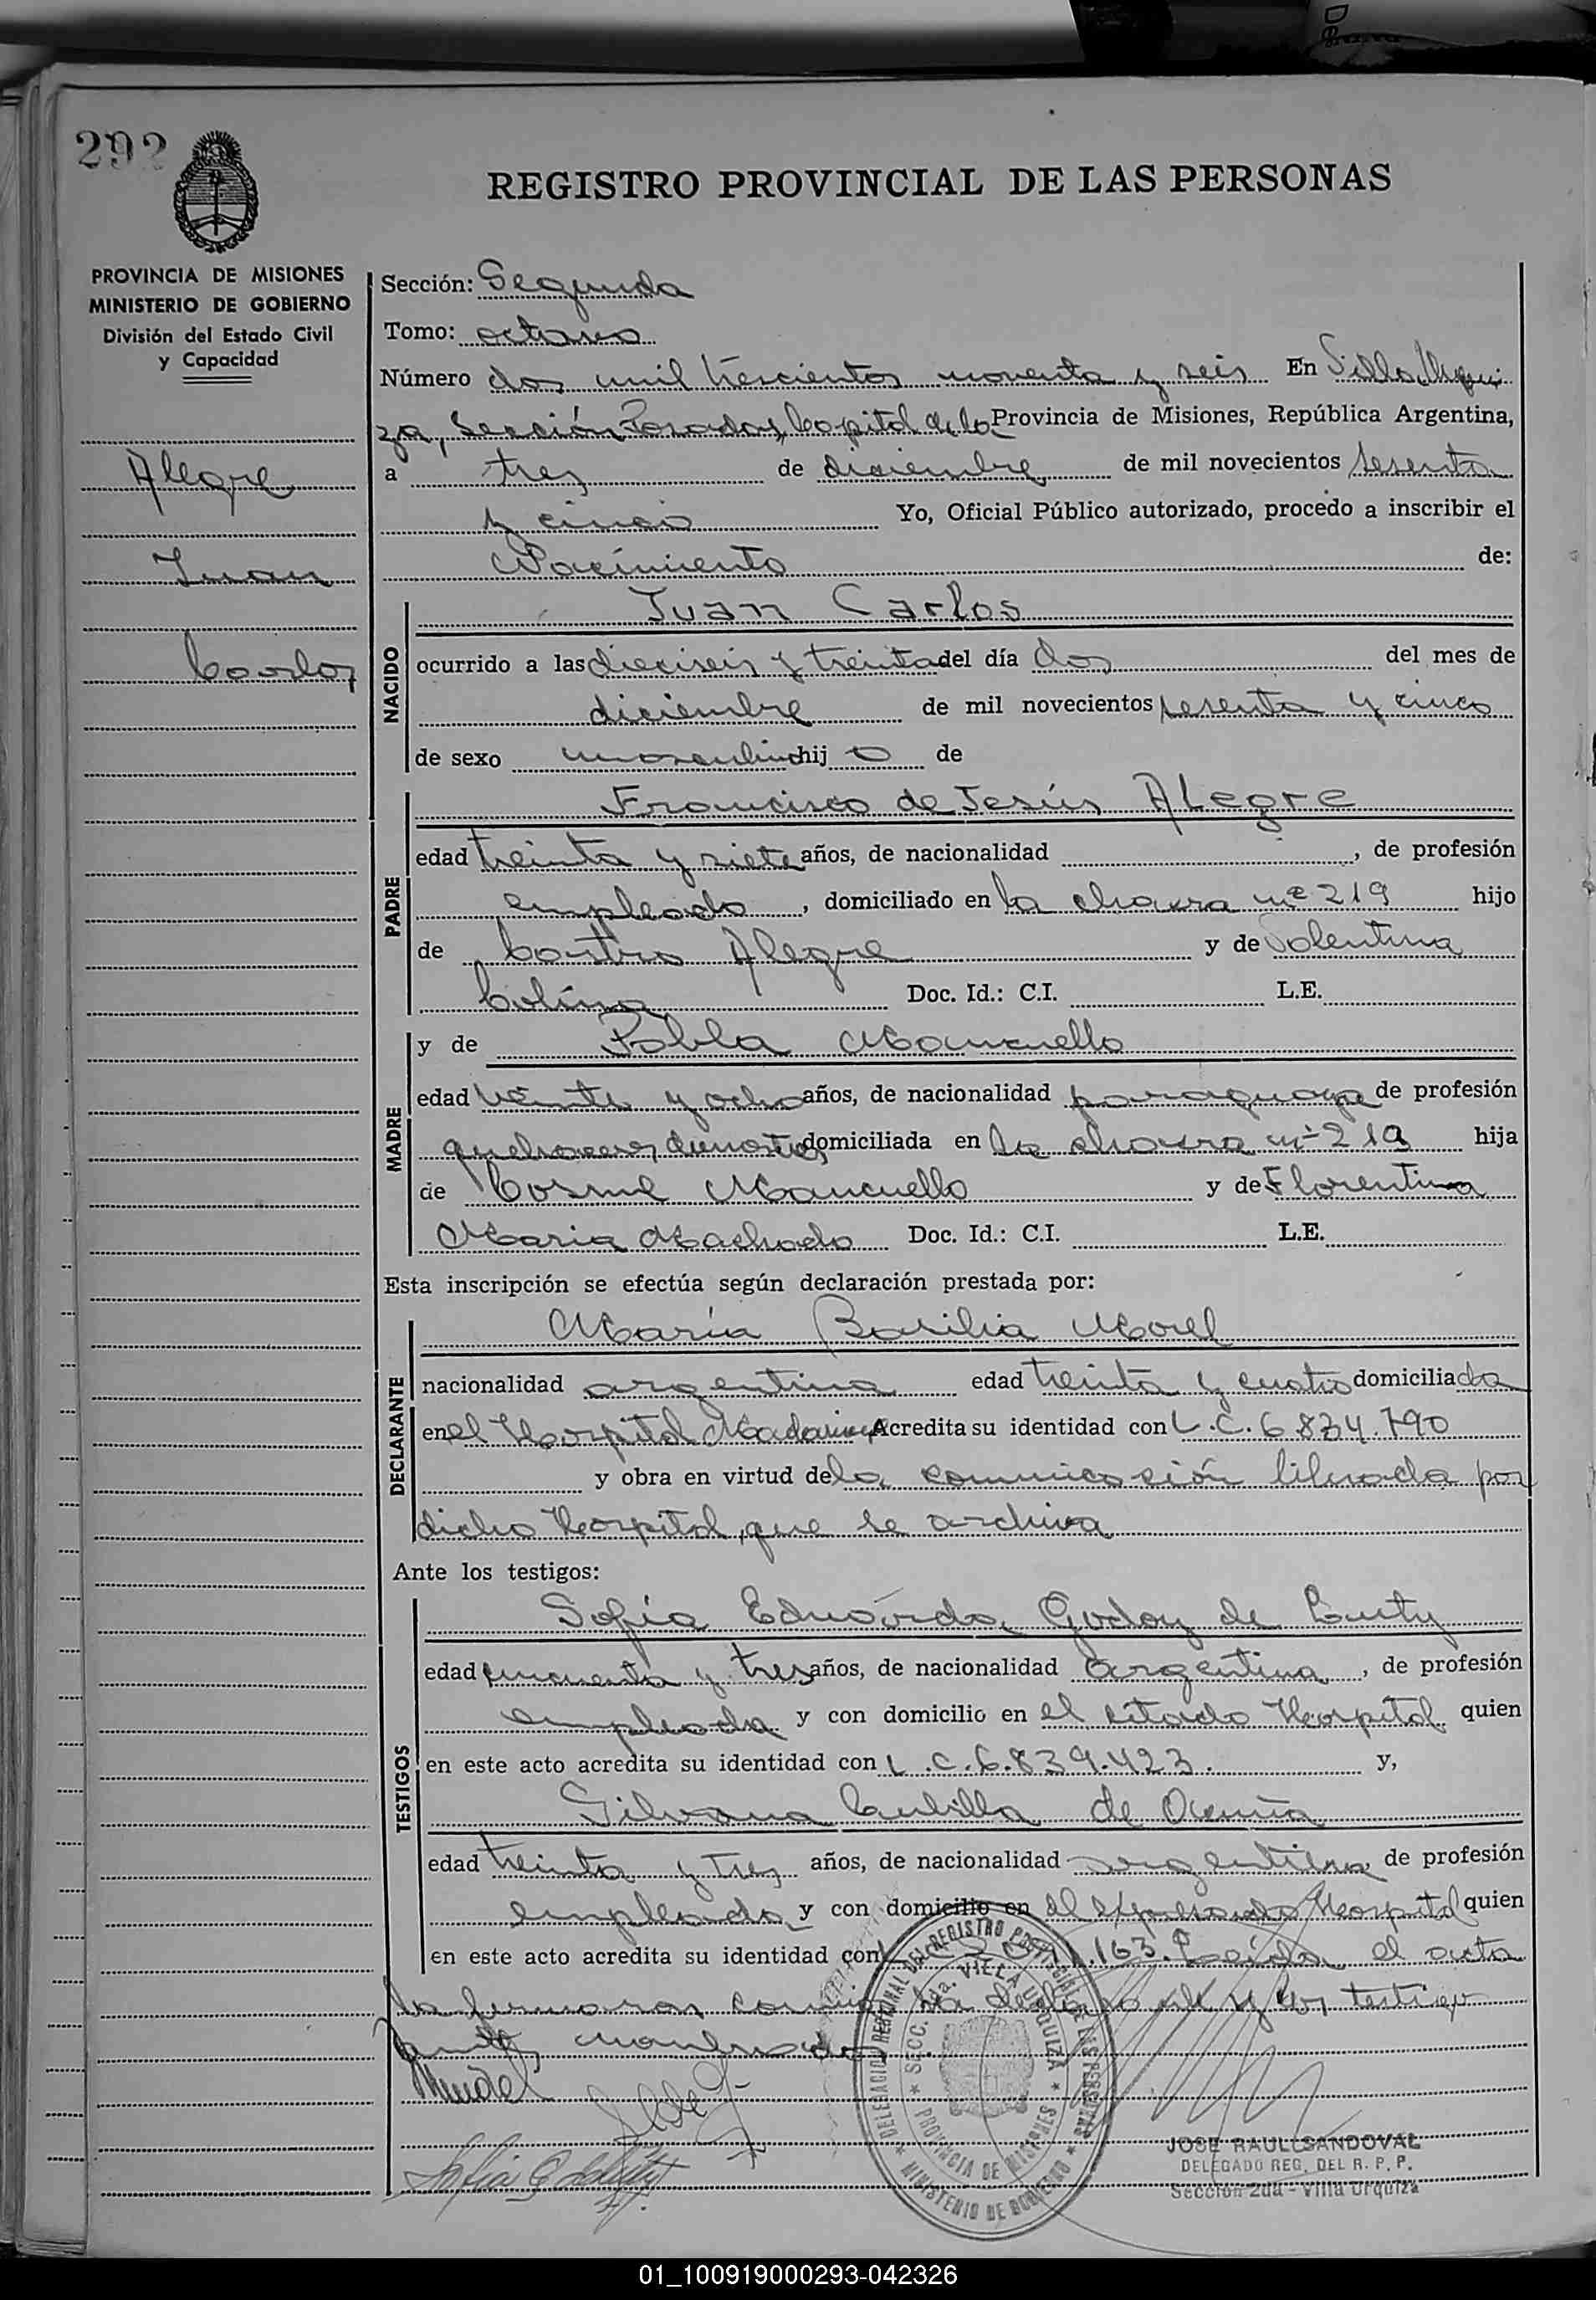 292
REGISTRO PROVINCIAL DE LAS PERSONAS
PROVINCIA DE MISIONES
MINISTERIO DE GOBIERNO
División del Estado Civil
y Capacidad
Alegre
Juan
Carlos
Sección: Segunda
Tomo: octavo
Número dos mil trescientos noventa y seis En Villa Urqui
za, Sección Posadas, Capital de la Provincia de Misiones, República Argentina,
a tres de diciembre de mil novecientos sesenta
y cinco Yo, Oficial Público autorizado, procedo a inscribir el
Nacimiento de:
NACIDO
Juan Carlos
ocurrido a las dieciseis y treinta del día dos del mes de
diciembre de mil novecientos sesenta y cinco
de sexo masculino hij o de
PADRE
Francisco de Jesús Alegre
edad treinta y siete años, de nacionalidad , de profesión
empleado , domiciliado en la chacra nº 219 hijo
de Castro Alegre y de Valentina
Colina Doc. Id.: C.I. L.E.
MADRE
y de Pabla Mancuello
edad veinte y ocho años, de nacionalidad paraguaya de profesión
quehaceres domiciliada en la chacra nº 219 hija
de Cosme Mancuello y de Florentina
Maria Machado Doc. Id.: C.I. L.E.
Esta inscripción se efectúa según declaración prestada por:
DECLARANTE
María Basilia Morel
nacionalidad argentina edad treinta y cuatro domiciliada
en el Hospital Madariaga Acredita su identidad con L.C. 6.834.790
y obra en virtud de la comunicación librada por
dicho Hospital, que se archiva
Ante los testigos:
TESTIGOS
Sofía Eduarda Godoy de
edad cincuenta y tres años, de nacionalidad argentina , de profesión
empleada y con domicilio en el citado Hospital quien
en este acto acredita su identidad con L.C. 6.839.423. y,
Silvana Cubilla de
edad treinta y tres años, de nacionalidad argentina de profesión
empleada y con domicilio en el expresado Hospital quien
en este acto acredita su identidad con 163. Leída el acta
la firmaron conmigo la y los testigos
DELEGACION REGIONAL DEL REGISTRO PROVINCIAL DE LAS PERSONAS
SECC. 2da. VILLA URQUIZA
PROVINCIA DE MISIONES
MINISTERIO DE GOBIERNO
JOSE RAUL SANDOVAL
DELEGADO REG. DEL R. P. P.
Sección 2da - Villa Urquiza
01_100919000293-042326